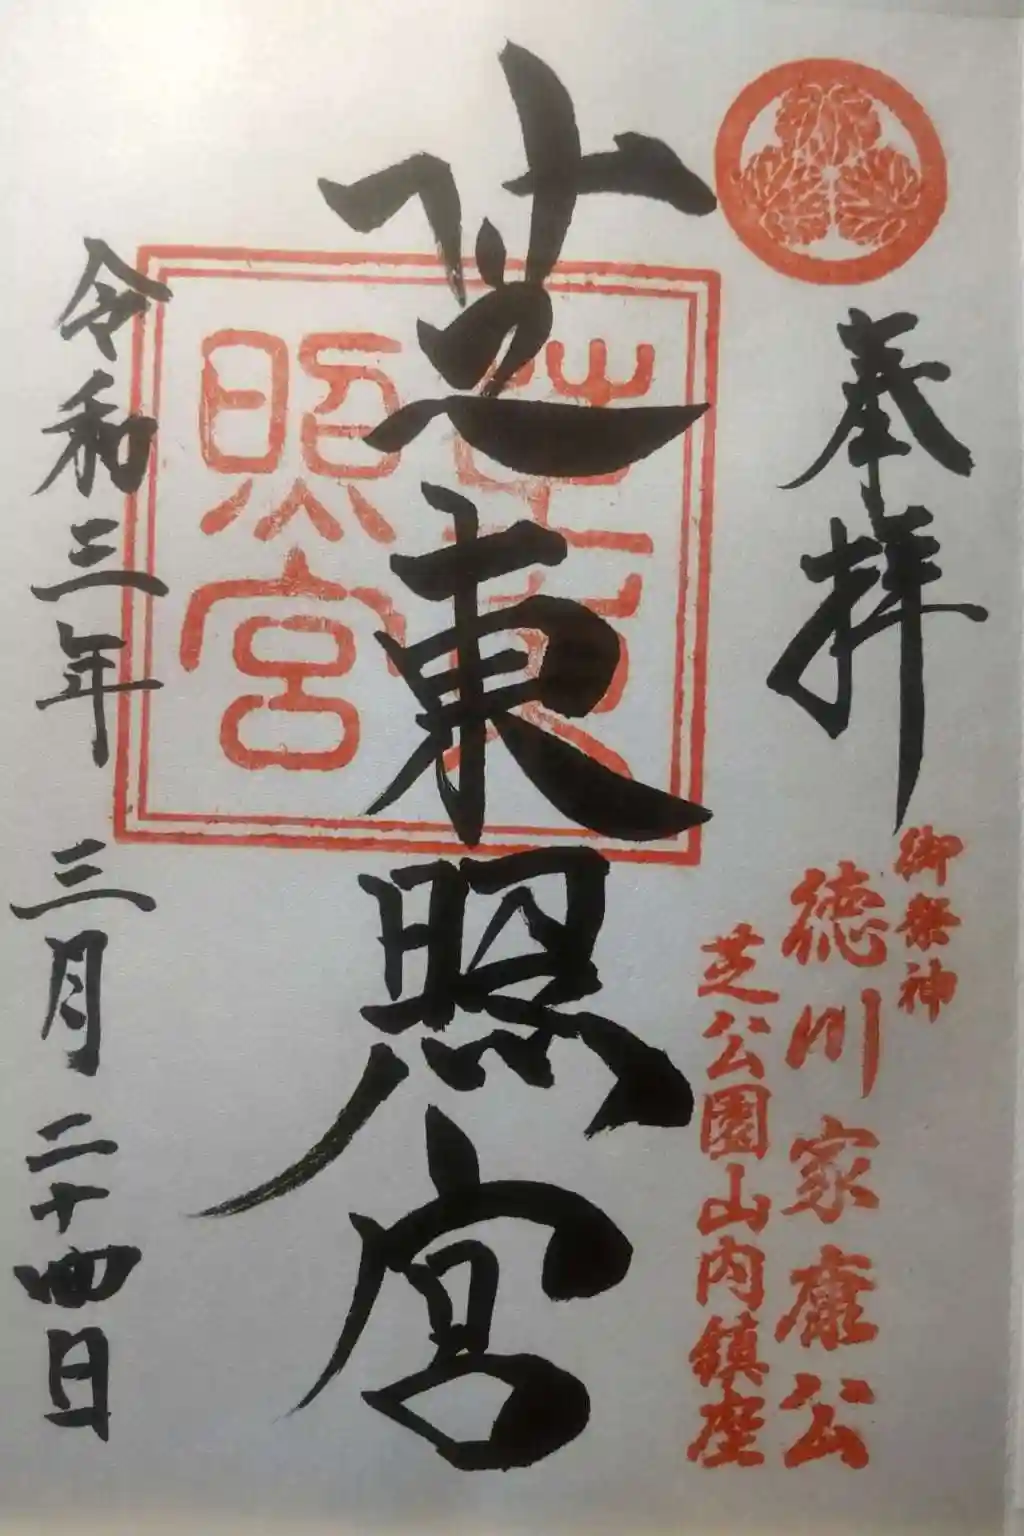 奉拝
御祭神
徳川家康公
芝公園山内鎮座
芝東照宮
芝東
照宮
令和三年 三月 二十四日